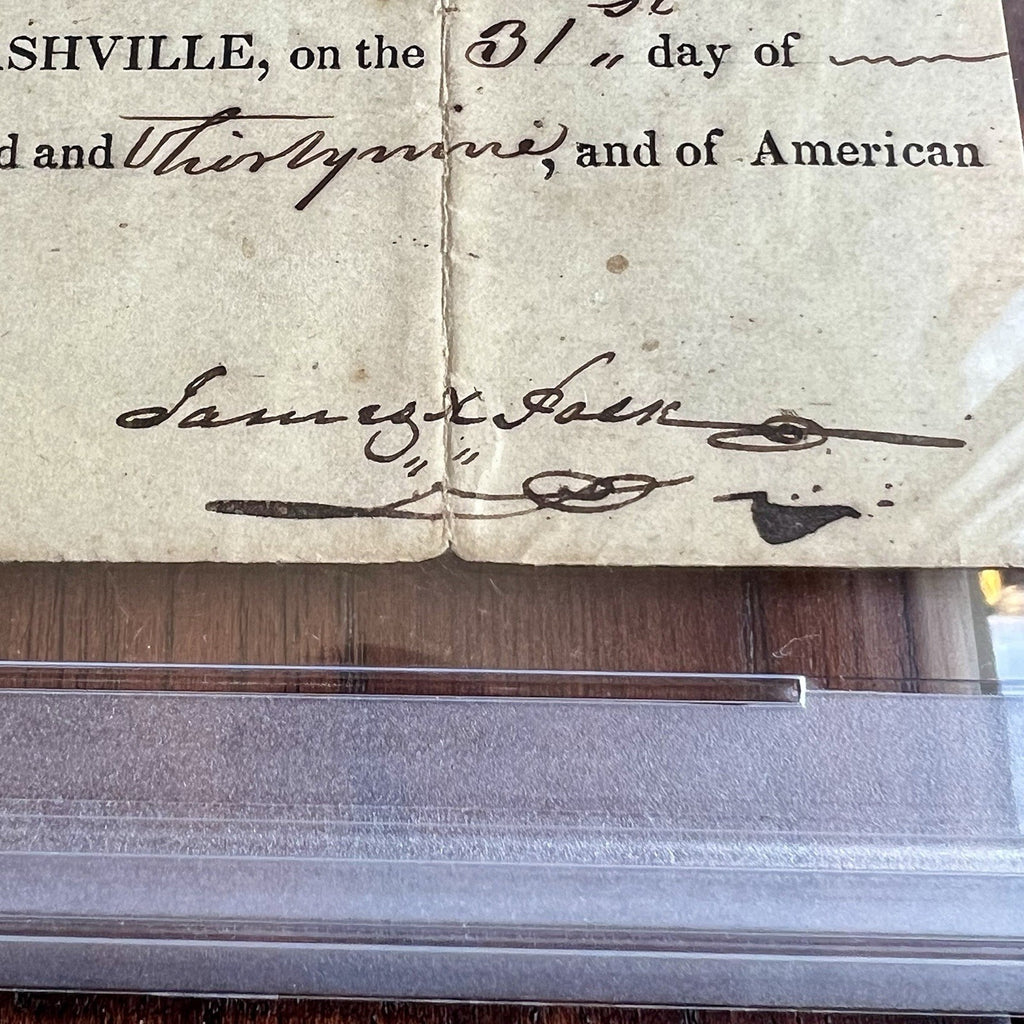 ASHVILLE, on the 31st day of
d and Thirtynine, and of American
James K Polk